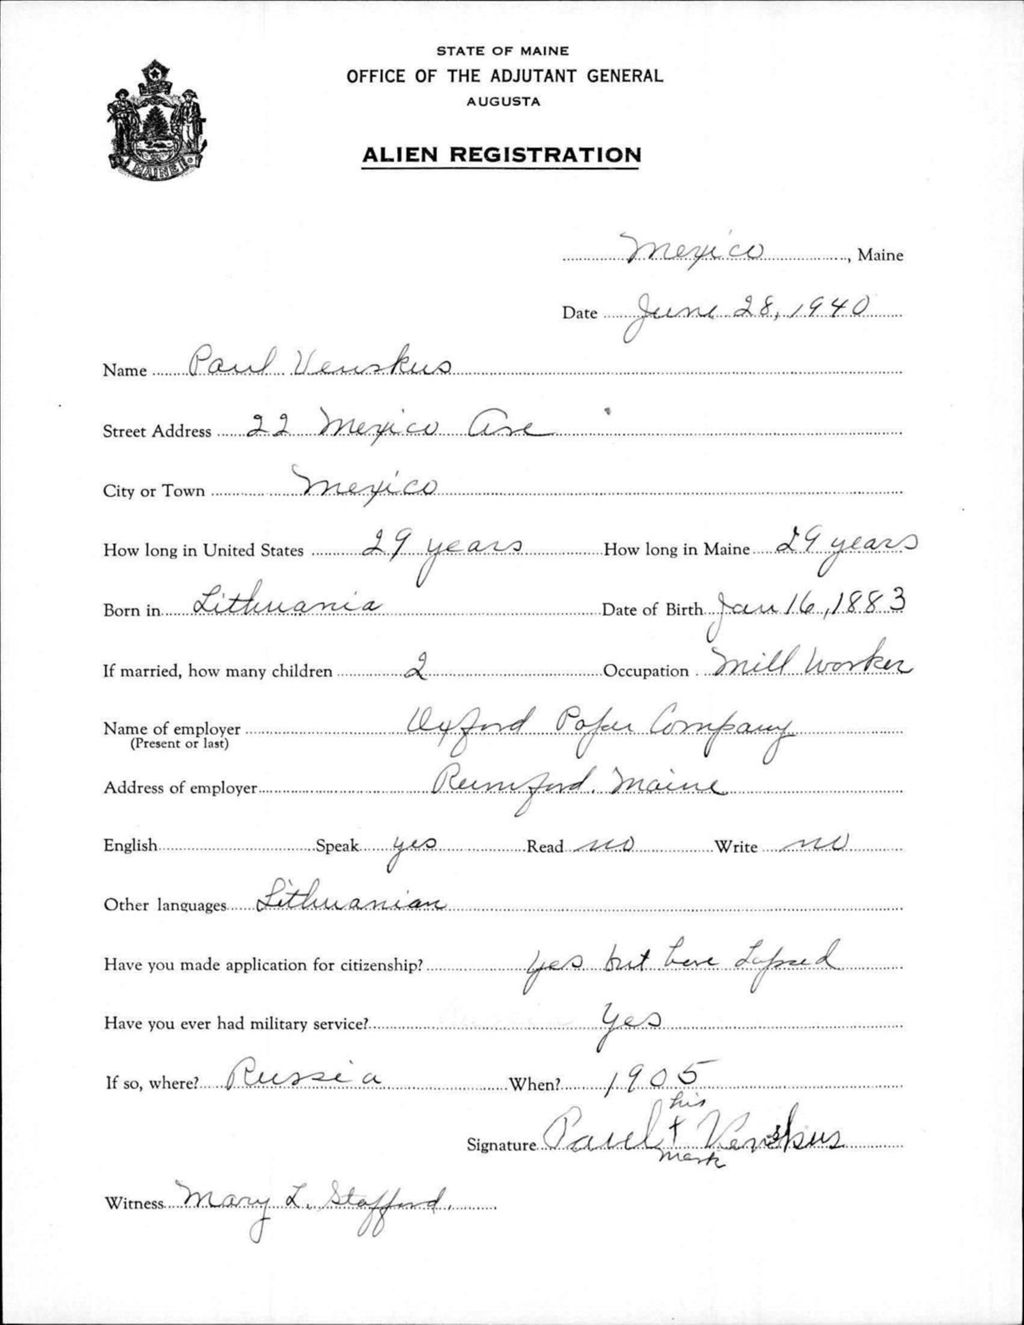 STATE OF MAINE
OFFICE OF THE ADJUTANT GENERAL
AUGUSTA
ALIEN REGISTRATION
MAINE
Mexico, Maine
Date June 28, 1940
Name Paul Venskus
Street Address 22 Mexico Ave
City or Town Mexico
How long in United States 29 years How long in Maine 29 years
Born in Lithuania Date of Birth Jan 16, 1883
If married, how many children 2 Occupation Mill Worker
Name of employer Oxford Paper Company
(Present or last)
Address of employer Rumford, Maine
English Speak yes Read no Write no
Other languages Lithuanian
Have you made application for citizenship? yes but have Lapsed
Have you ever had military service? Yes
If so, where? Russia When? 1905
his
Signature Paul + Venskus
mark
Witness Mary L. Stafford.